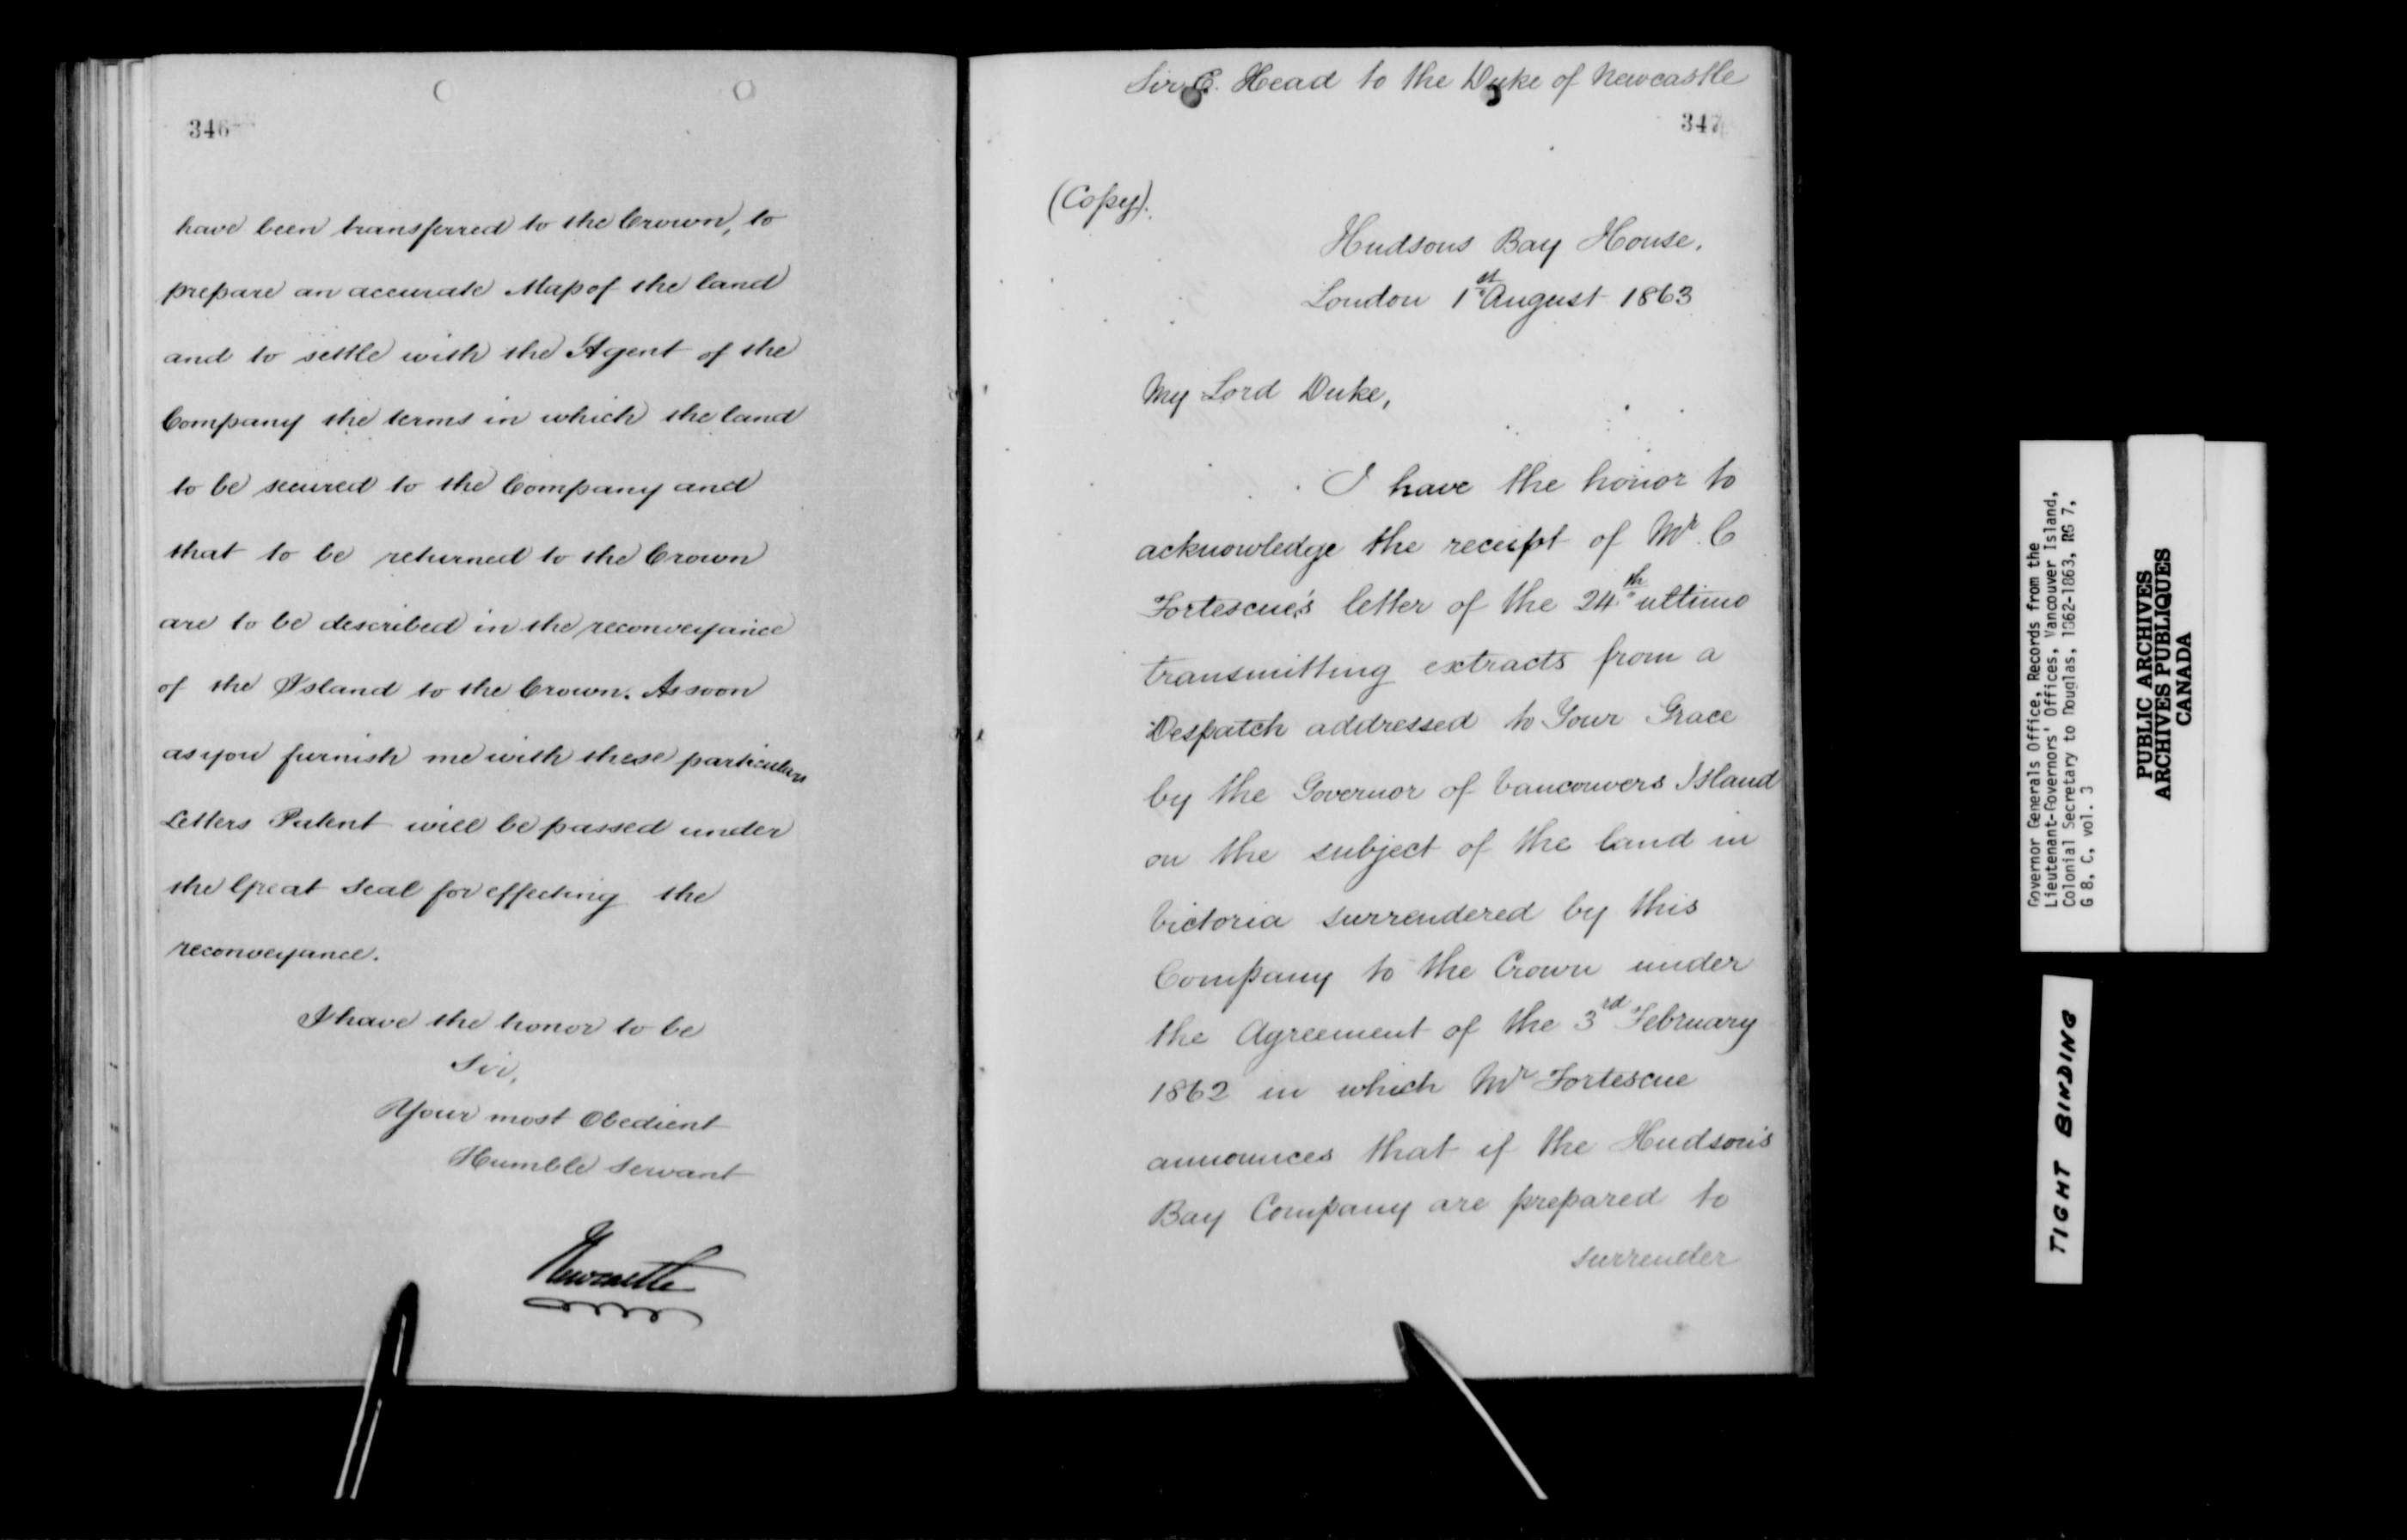 346
have been transferred to the Crown, to
prepare an accurate Map of the land
and to settle with the Agent of the
Company the terms in which the land
to be secured to the Company and
that to be returned to the Crown
are to be described in the reconveyance
of the Island to the Crown. As soon
as you furnish me with these particulars
Letters Patent will be passed under
the Great Seal for effecting the
reconveyance.
I have the honor to be
Sir,
Your most Obedient
Humble Servant
Newcastle
Sir E. Head to the Duke of Newcastle
347
(Copy).
Hudsons Bay House.
London 1st August 1863
My Lord Duke,
I have the honor to
acknowledge the receipt of Mr. C
Fortescue's letter of the 24th ultimo
transmitting extracts from a
Despatch addressed to Your Grace
by the Governor of Vancouvers Island
on the subject of the land in
Victoria surrendered by this
Company to the Crown under
the Agreement of the 3rd February
1862 in which Mr Fortescue
announces that if the Hudson's
Bay Company are prepared to
surrender
Governor Generals Office, Records from the
Lieutenant-Governors' Offices, Vancouver Island,
Colonial Secretary to Douglas, 1862-1863, RG 7,
G 8, C, vol. 3
PUBLIC ARCHIVES
ARCHIVES PUBLIQUES
CANADA
TIGHT BINDING